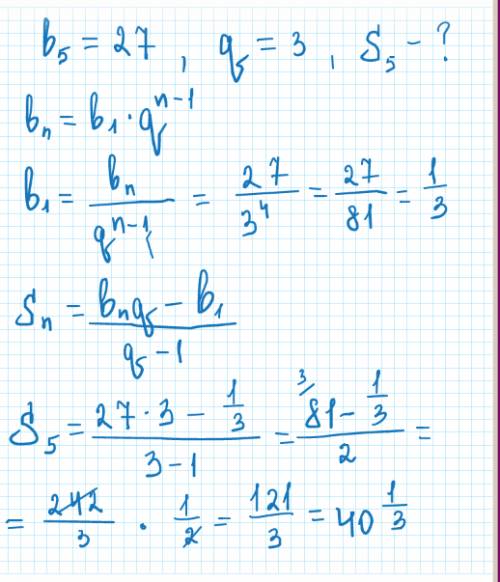 b₅ = 27 , q = 3 , S₅ - ?
bₙ = b₁ · qⁿ⁻¹
b₁ = bₙ/qⁿ⁻¹ = 27/3⁴ = 27/81 = 1/3
Sₙ = (bₙq - b₁)/(q - 1)
S₅ = (27 · 3 - 1/3)/(3 - 1) = (³⁄81 - 1/3)/2 =
= 242/3 · 1/2 = 121/3 = 40 1/3